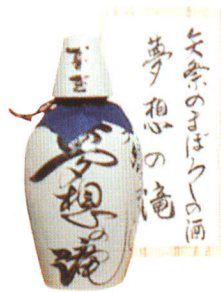 矢祭のまぼろしの酒
夢想の滝
夢想の滝